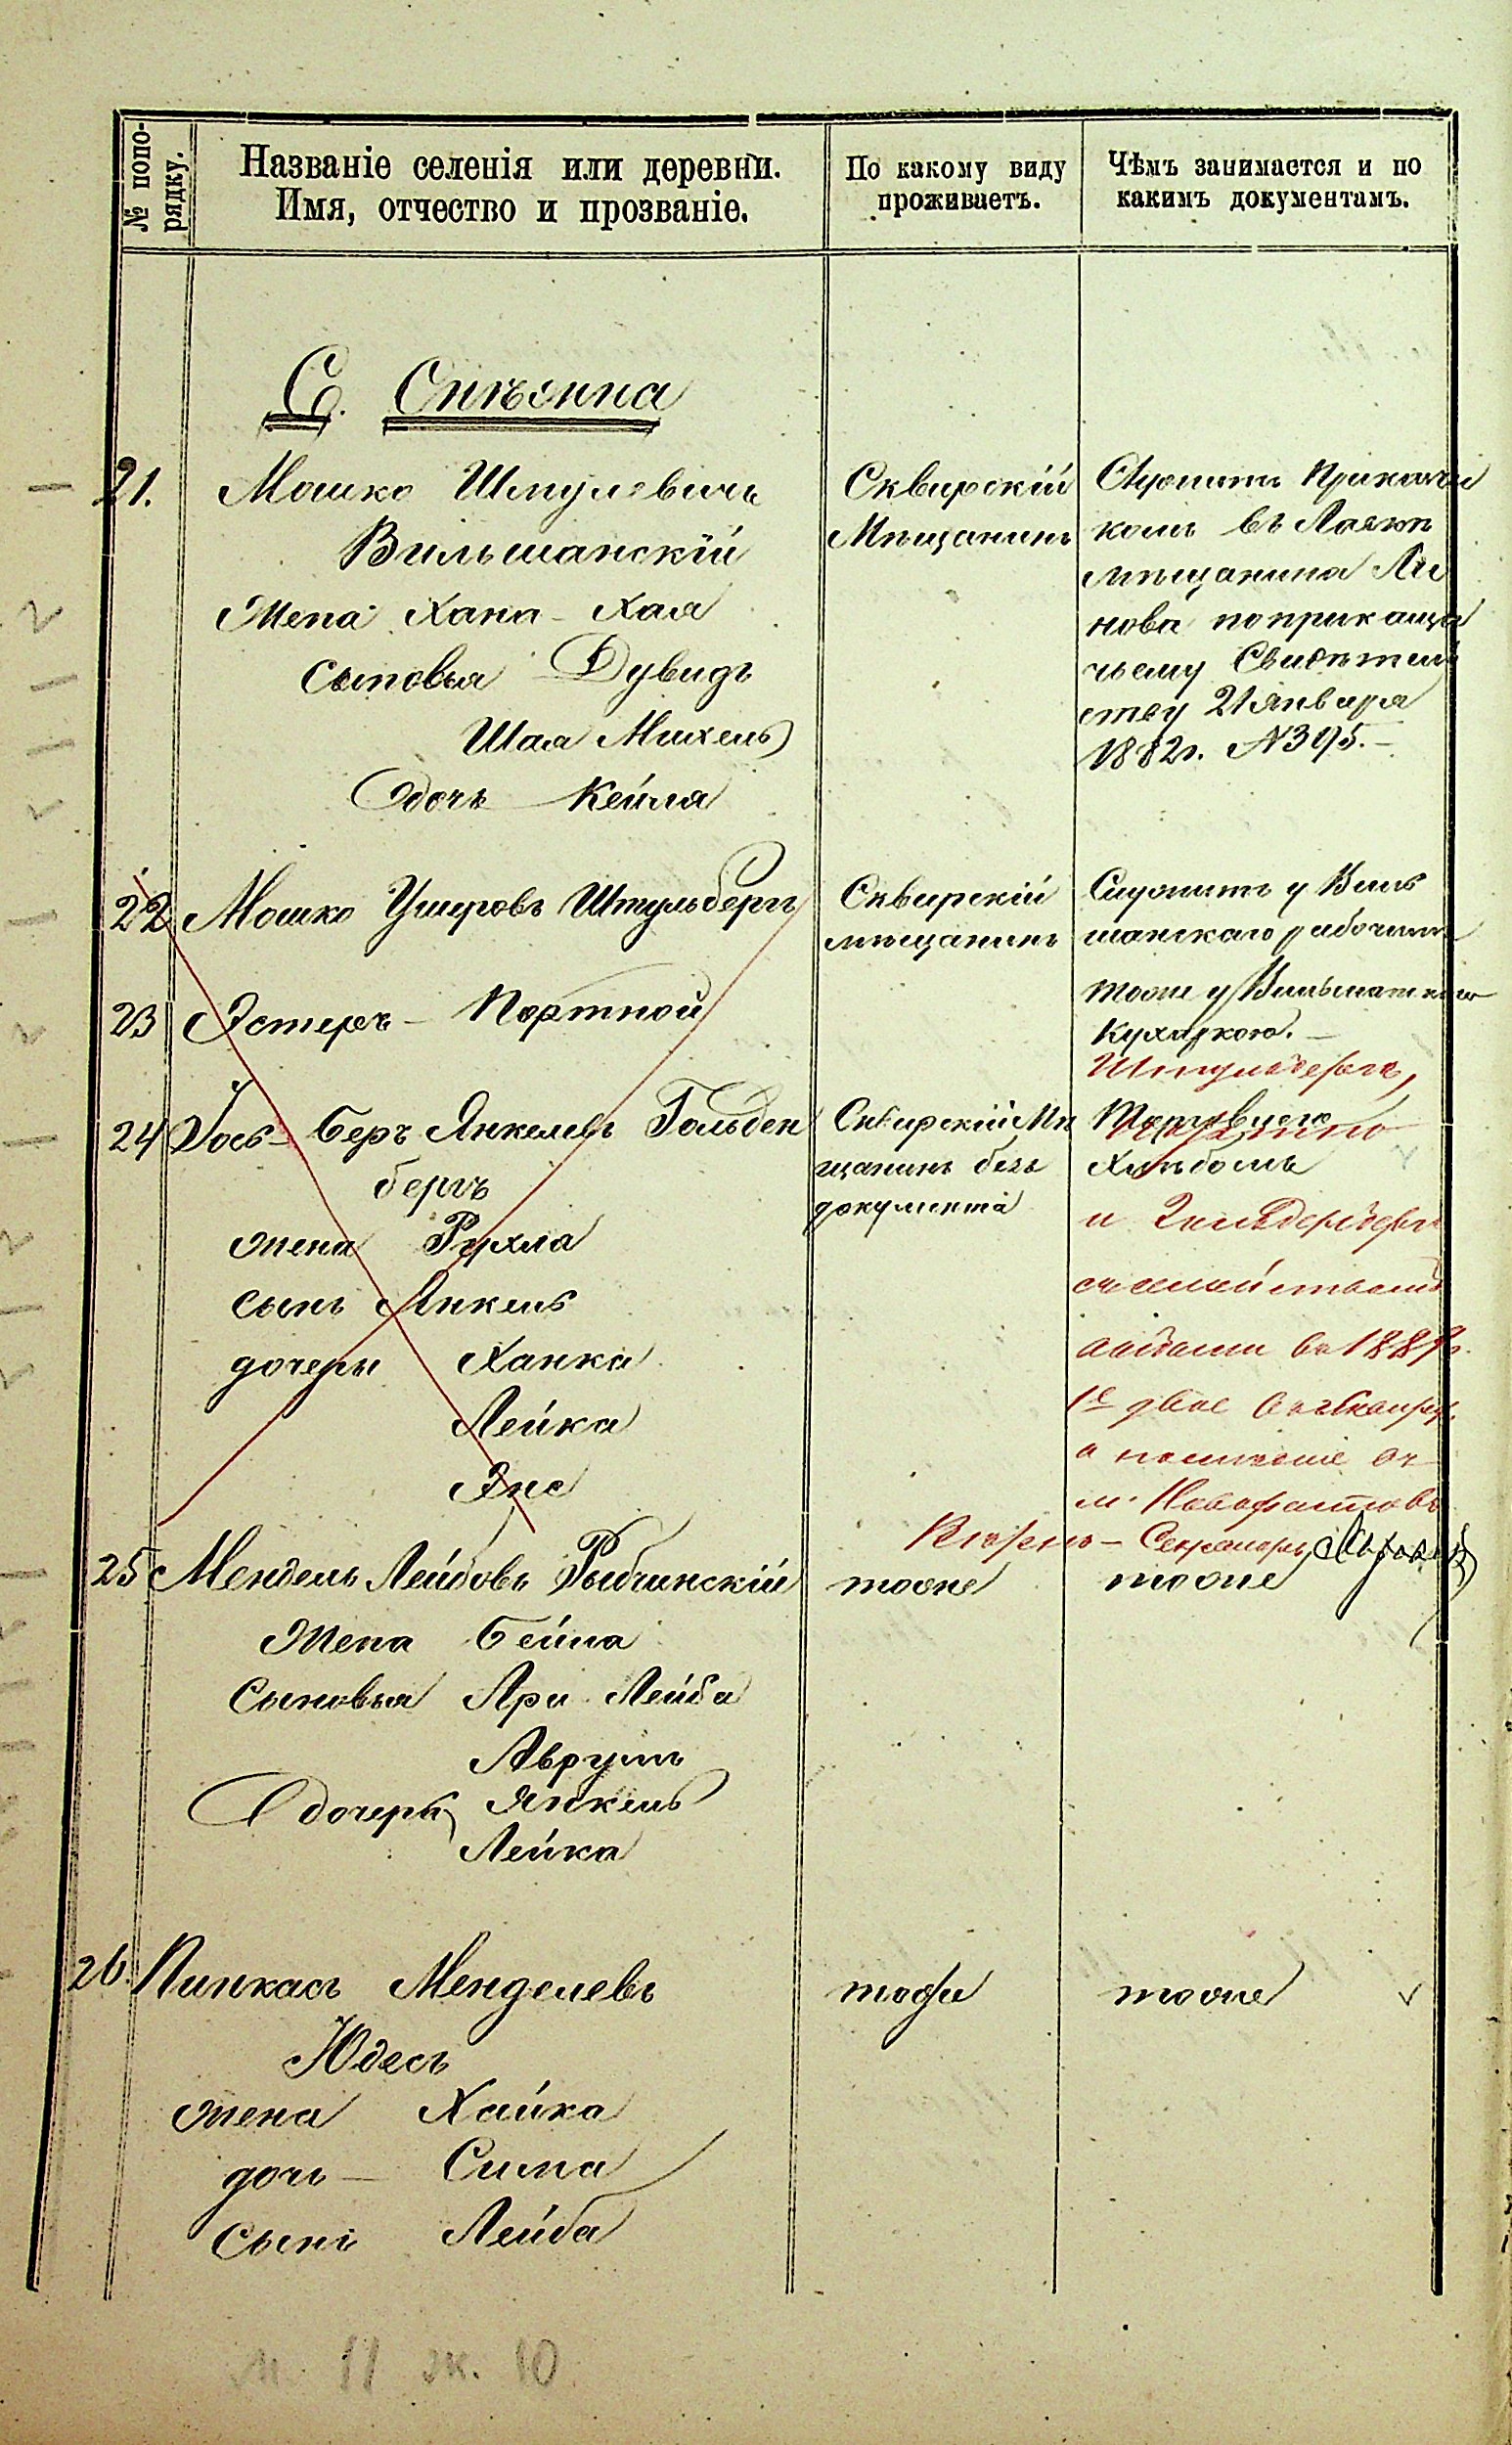 № попо-
рядку.
Названіе селенія или деревни.
Имя, отчество и прозваніе.
По какому виду
проживаетъ.
Чѣмъ занимается и по
какимъ документамъ.
С.
21.
Мошко Шмулевичъ
Вильшанскій
Жена Хана - Хая
Сыновья Дувидъ
Шая Михель
дочь Кейля
Сквирскій
Мѣщанинъ
Служитъ Прикащи
комъ въ Лавкѣ
мѣщанина
нова по прикащи
чьему Свидѣтель
ству 21 Января
1882г. №395.-
22
Мошко Ушеровъ Штульбергъ
Сквирскій
мѣщанинъ
Служитъ у Виль
шанскаго рабочимъ
23
Эстеръ - Портной
тоже у Вильшанскаго
Кухаркою. -
Штульбергъ,
24
Іось - Беръ Янкелевъ Гольден
бергъ
жена Рухля
сынъ Янкель
дочери Ханка
Лейка
Эне
Сквирскій Мѣ
щанинъ безъ
документа
Торговцею
Хлѣбомъ
и
съ семействомъ
въ 188
1е двое въ г Сквиру,
а послѣдніе въ
м.
25
Мендель Лейбовъ Рыбчинскій
Жена Бейла
Сыновья Ари - Лейба
Аврумъ
Янкель
дочери
Лейка
тоже
тоже
26.
Пинкасъ Менделевъ
Юдесъ
жена Хайка
дочь - Сима
Сынъ Лейба
тоже
тоже
м. 11 ж. 10